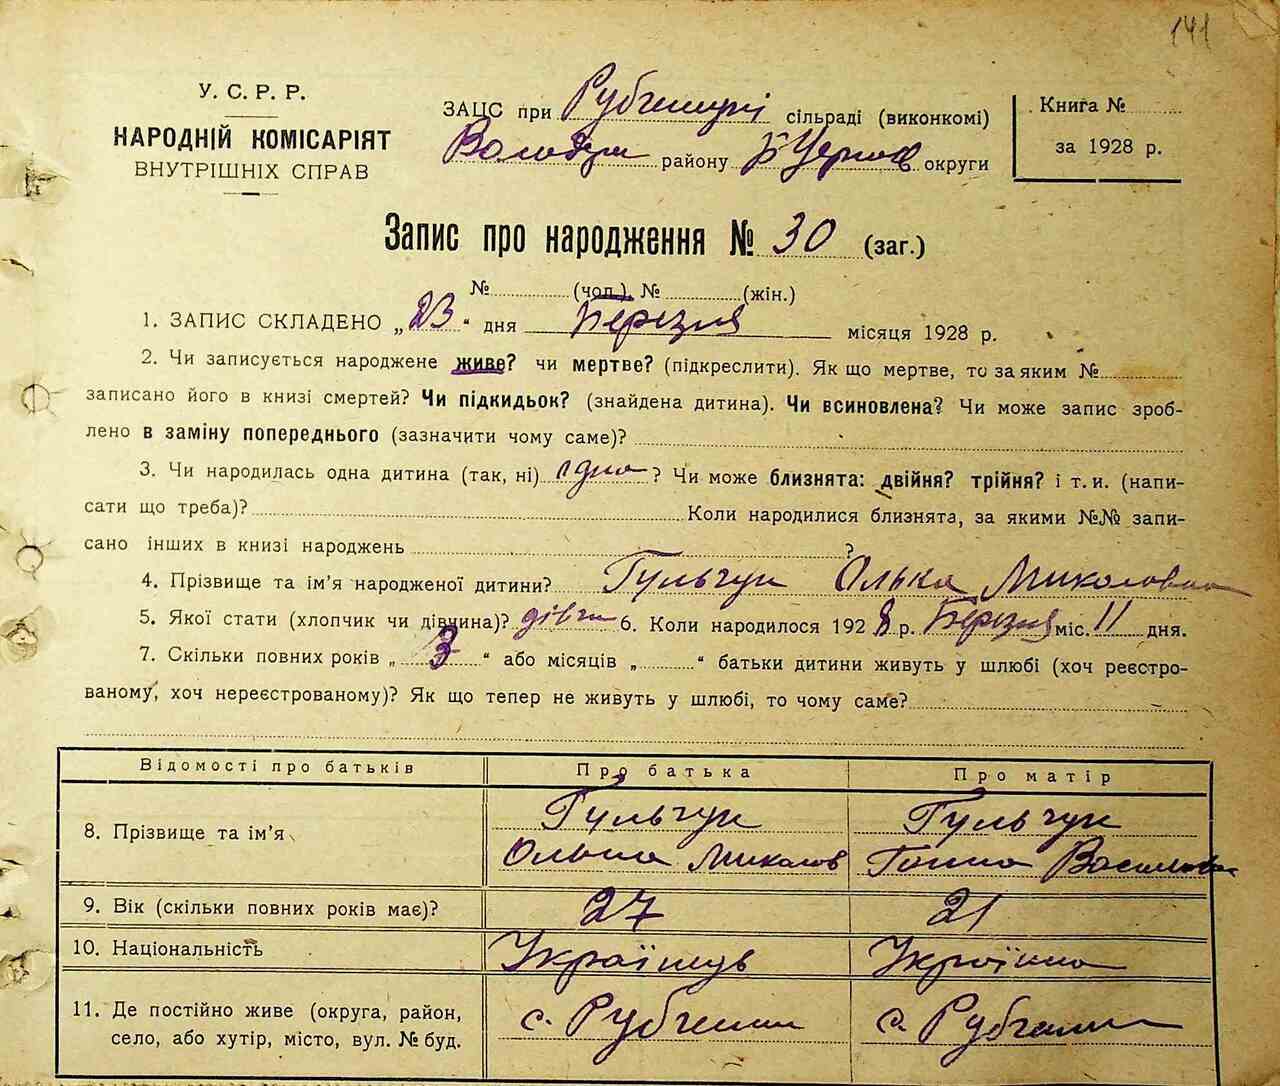 141
У. С. Р. Р.
НАРОДНІЙ КОМІСАРІЯТ
ВНУТРІШНІХ СПРАВ
ЗАЦС при сільраді (виконкомі)
Володар району Б Церков округи
Книга №
за 1928 р.
Запис про народження № 30 (заг.)
№ (чол.), № (жін.)
1. ЗАПИС СКЛАДЕНО „23“ дня Березня місяця 1928 р.
2. Чи записується народжене живе? чи мертве? (підкреслити). Як що мертве, то за яким №
записано його в книзі смертей? Чи підкидьок? (знайдена дитина). Чи всиновлена? Чи може запис зроб-
лено в заміну попереднього (зазначити чому саме)?
3. Чи народилась одна дитина (так, ні) одна? Чи може близнята: двійня? трійня? і т. и. (напи-
сати що треба)? Коли народилися близнята, за якими №№ запи-
сано інших в книзі народжень ?
4. Прізвище та ім’я народженої дитини? Гульчук Олька Миколовна
5. Якої стати (хлопчик чи дівчина)? дівчи 6. Коли народилося 1928 р. Березня міс. 11 дня.
7. Скільки повних років „3“ або місяців „ “ батьки дитини живуть у шлюбі (хоч реєстро-
ваному, хоч нереєстрованому)? Як що тепер не живуть у шлюбі, то чому саме?
Відомості про батьків Про батька Про матір
8. Прізвище та ім’я
Гульчук Гульчук
Миколов Ганна Василівна
9. Вік (скільки повних років має)? 27 21
10. Національність Українець Українка
11. Де постійно живе (округа, район,
село, або хутір, місто, вул. № буд.
с. Рубченки с. Рубченки